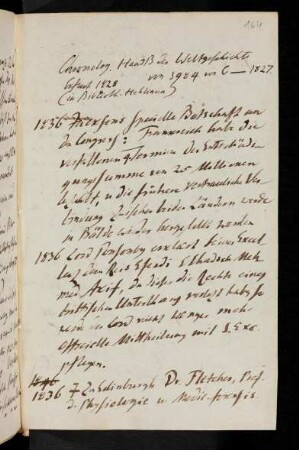 164
Chronolog. Handb. der Weltgeschichte
Erfurt 1828 von 3984 vor C — 1827.
(in Biblioth. Hebmann)
1836 Jacksons specielle Botschaft an
den Congress: Frankreich habe die
verfallenen 4 Termine der Entschädi
gungssumme von 25 Millionen
bezahlt, u die frühere vertrauliche Ver
bindung zwischen beiden Ländern werde
in Bälde wieder hergestellt werden
1836 Lord Ponsonby erklärt Seiner Excel
lenz dem Reis Efendi Elhadsch Meh
med Akif, da dieser die Rechte eines
brittischen Unterthans verletzt habe, so
werde er Lord nicht länger mehr
officielle Mittheilung mit S. Exc.
pflegen.
1836 † In Edinburgh Dr. Fletcher, Prof.
d. Physiologie u. Medic. forensis.